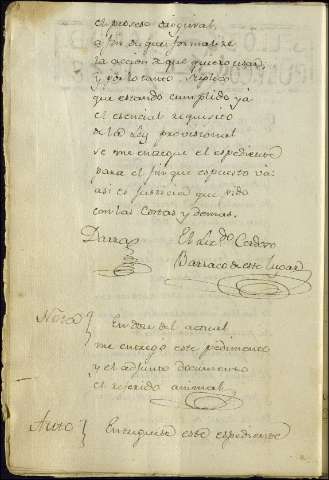 el proceso original,
a fin de que formalize
la accion de que quiero usar,
y por lo tanto suplico
que estando cumplido ya
el esencial requisito
de la Ley provisional
se me entregue el espediente
para el fin que espuesto va:
asi es justicia que pido
con las Costas y demas.
El Lic.do Cordovo
Barraco de este Lugar
Nota} En doce del actual
me entrego este pedimento
y el adjunto documento
el referido animal
Auto} Entreguese este espediente